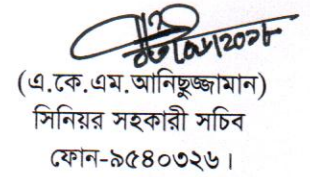 (এ.কে.এম.আনিছুজ্জামান)
সিনিয়র সহকারী সচিব
ফোন-৯৫৪০৩২৬।